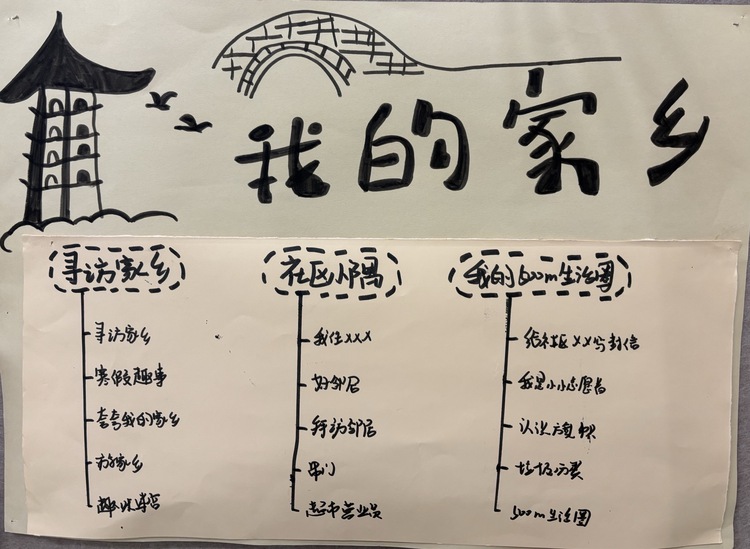 我的家乡
寻访家乡
寻访家乡
寒假趣事
夸夸我的家乡
游家乡
社区邻居
我住XXX
好邻居
拜访邻居
串门
超市营业员
我的500m生活圈
给社区XX写封信
我是小小志愿者
认识方向
垃圾分类
500m生活圈